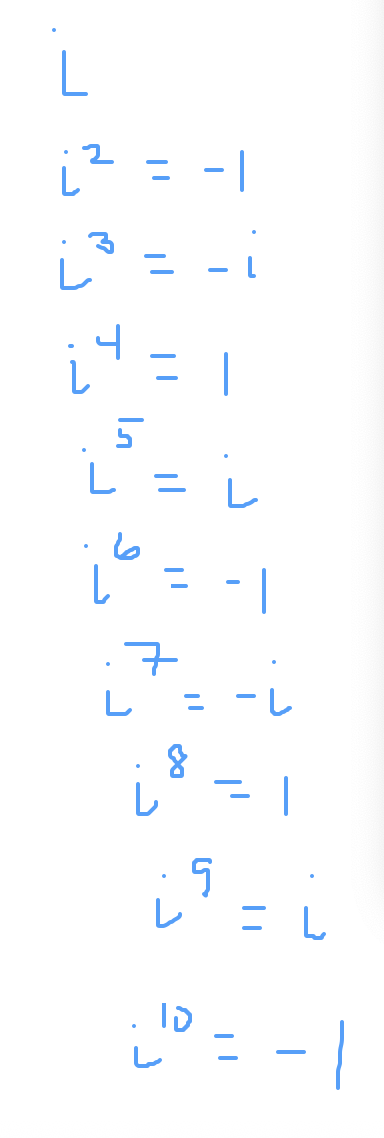 i
i² = -1
i³ = -i
i⁴ = 1
i⁵ = i
i⁶ = -1
i⁷ = -i
i⁸ = 1
i⁹ = i
i¹⁰ = -1